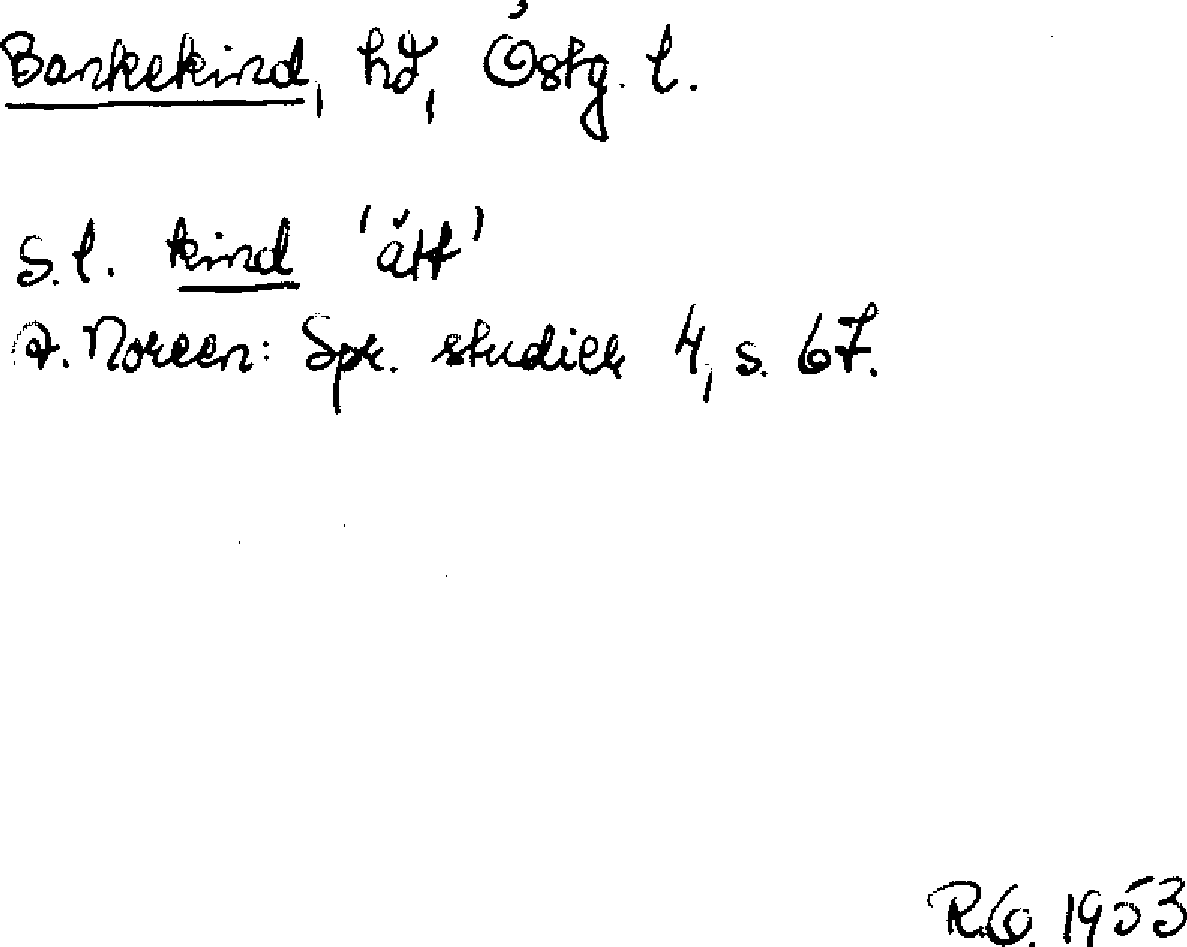 Bankekind, hd, Östg. l.
S.l. kind 'ätt'
A. Noreen: Spr. studier 4, s. 67.
R.G. 1953